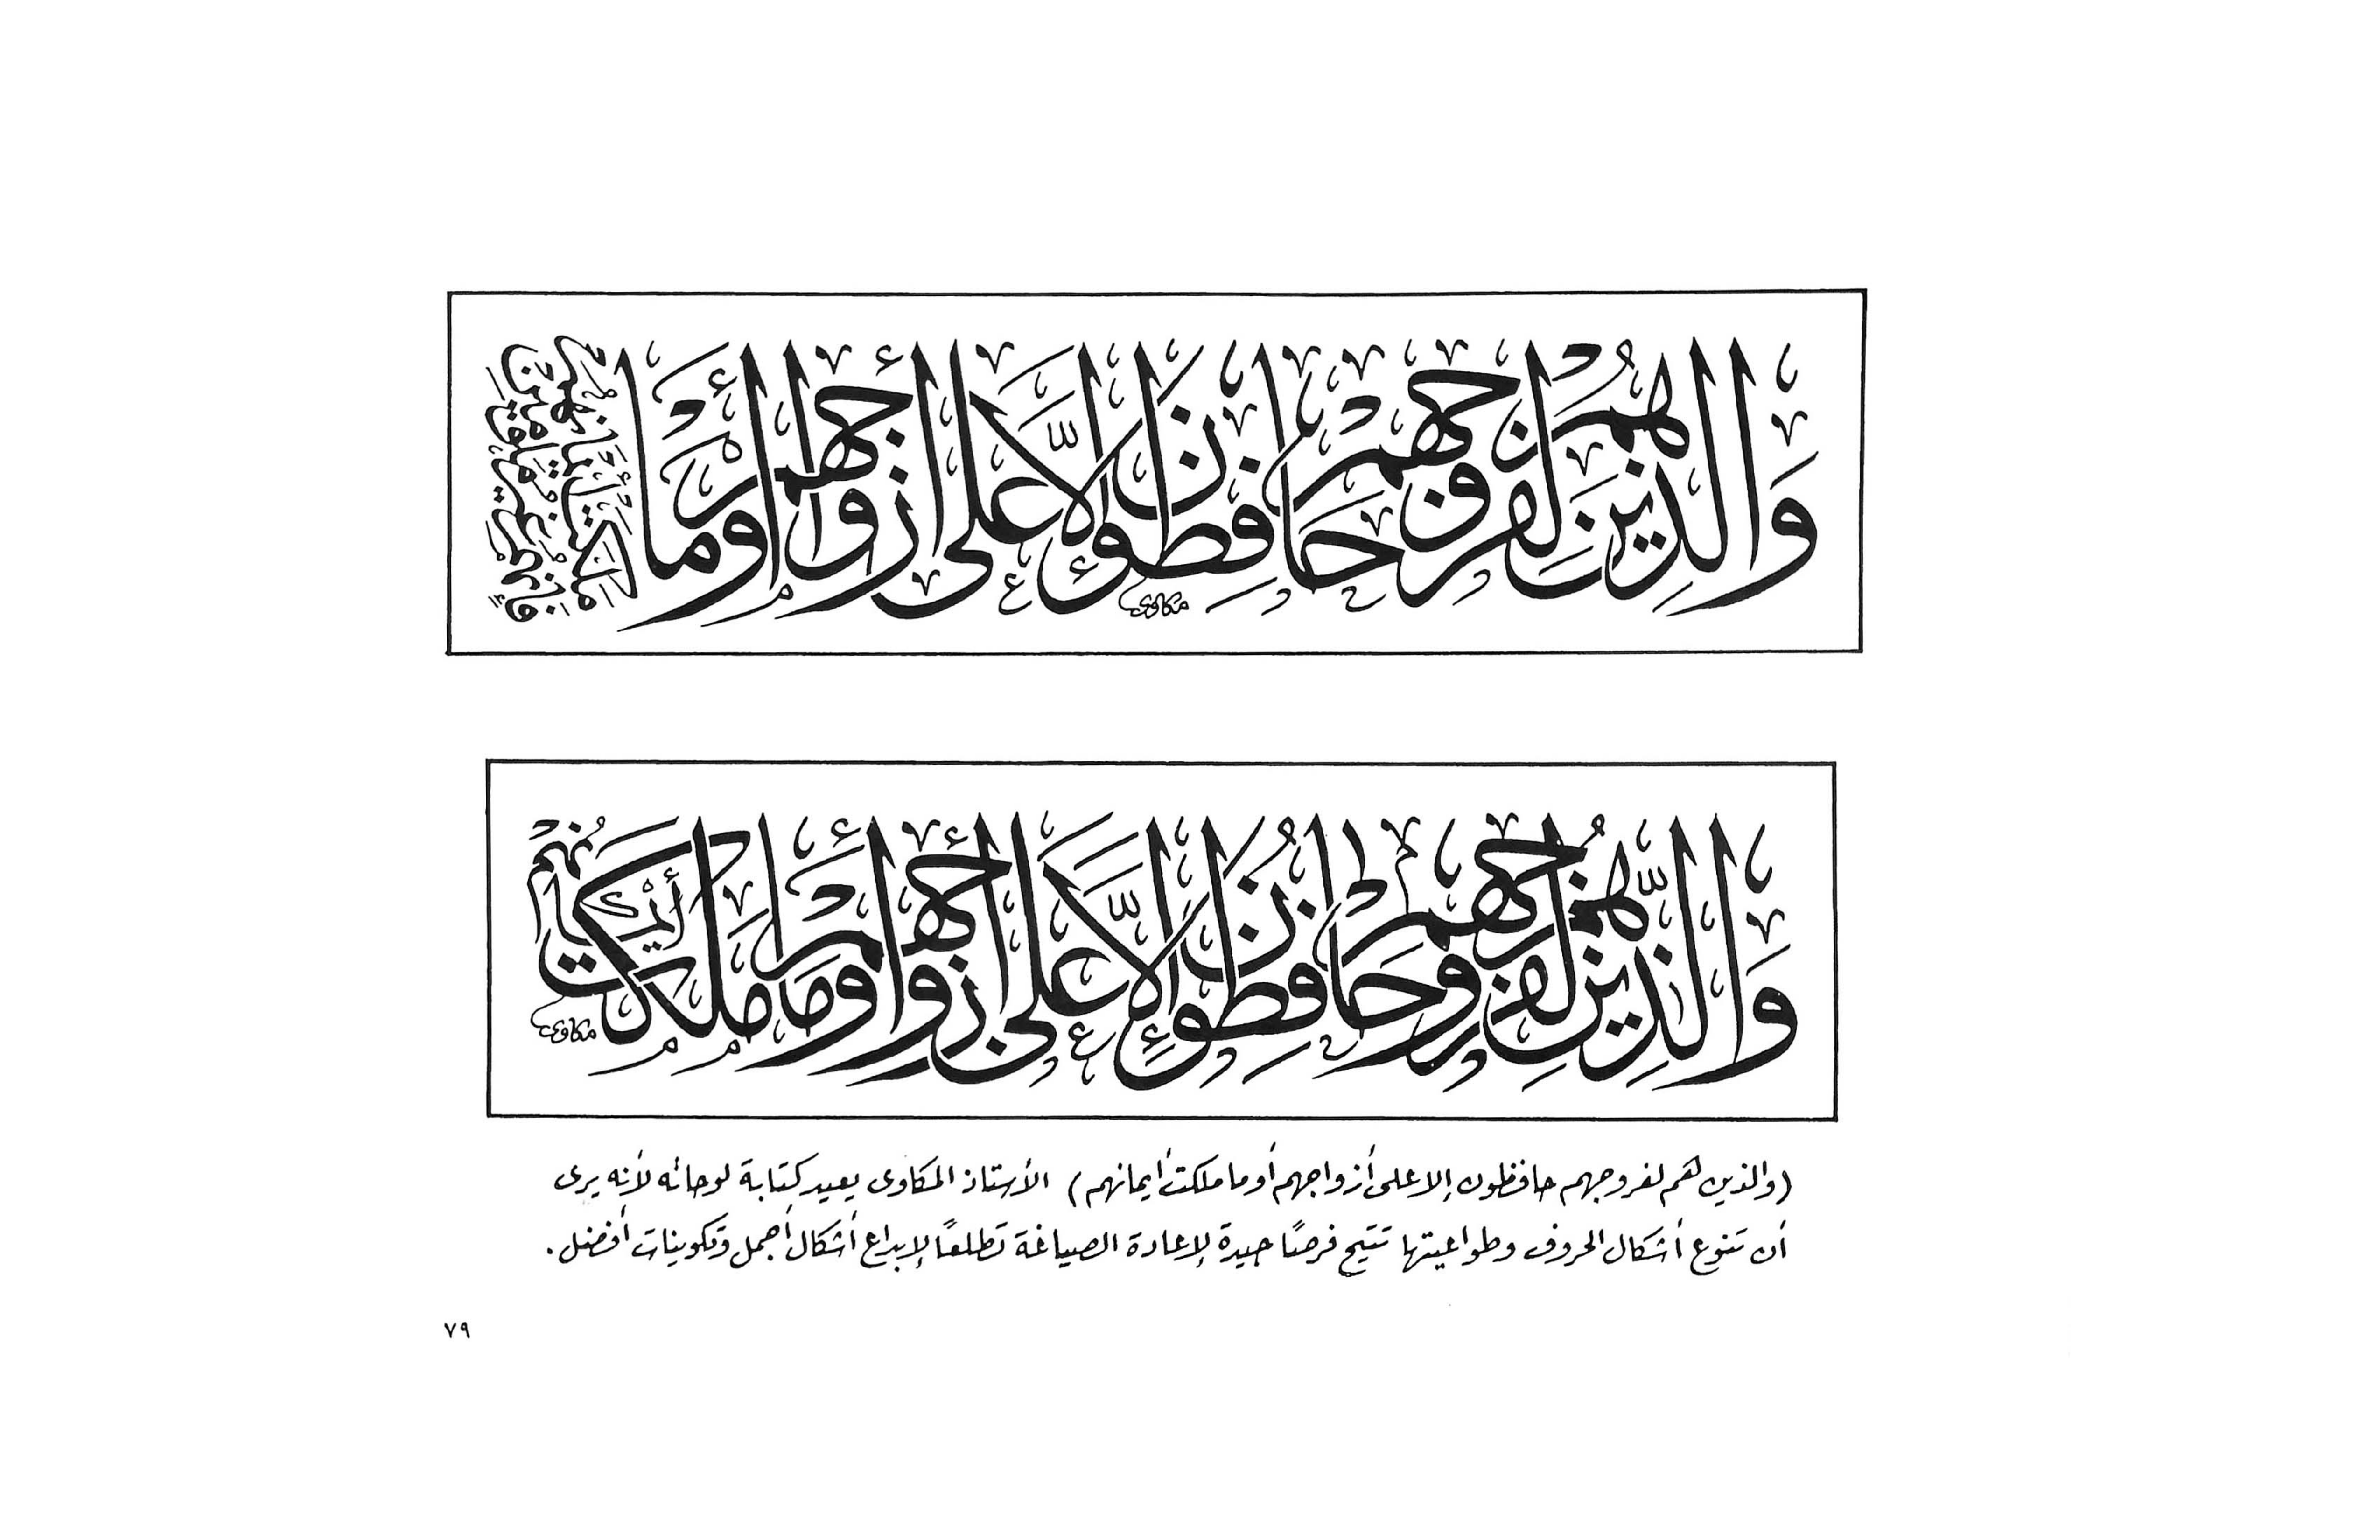 وَالَّذِينَ هُمْ لِفُرُوجِهِمْ حَافِظُونَ إِلَّا عَلَىٰ أَزْوَاجِهِمْ أَوْ مَا
مكاوى
وَالَّذِينَ هُمْ لِفُرُوجِهِمْ حَافِظُونَ إِلَّا عَلَىٰ أَزْوَاجِهِمْ أَوْ مَا مَلَكَتْ أَيْمَانُهُمْ
مكاوى
(والذين هم لفروجهم حافظون إلا على أزواجهم أو ما ملكت أيمانهم) الأستاذ المكاوى يعيد كتابة لوحاته لأنه يرى
أن تنوع أشكال الحروف وطواعيتها تتيح فرصًا جيدة لإعادة الصياغة تطلعًا لإبداع أشكال أجمل وتكوينات أفضل.
٧٩